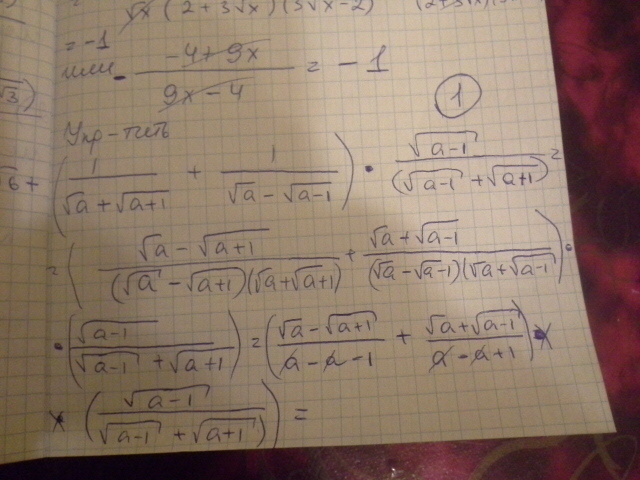 √x (2+3√x)(3√x-2) (2+3√x)(
= -1
или - (-4+9x)/(9x-4) = -1
√3)
1
Упр-тить
√6 + (1/(√a+√(a+1)) + 1/(√a-√(a-1))) · √(a-1)/(√(a-1)+√(a+1)) =
= ((√a-√(a+1))/((√a-√(a+1))(√a+√(a+1))) + (√a+√(a-1))/((√a-√(a-1))(√a+√(a-1)))) ·
· (√(a-1)/(√(a-1)+√(a+1))) = ((√a-√(a+1))/(a-a-1) + (√a+√(a-1))/(a-a+1)) ×
× (√(a-1)/(√(a-1)+√(a+1))) =